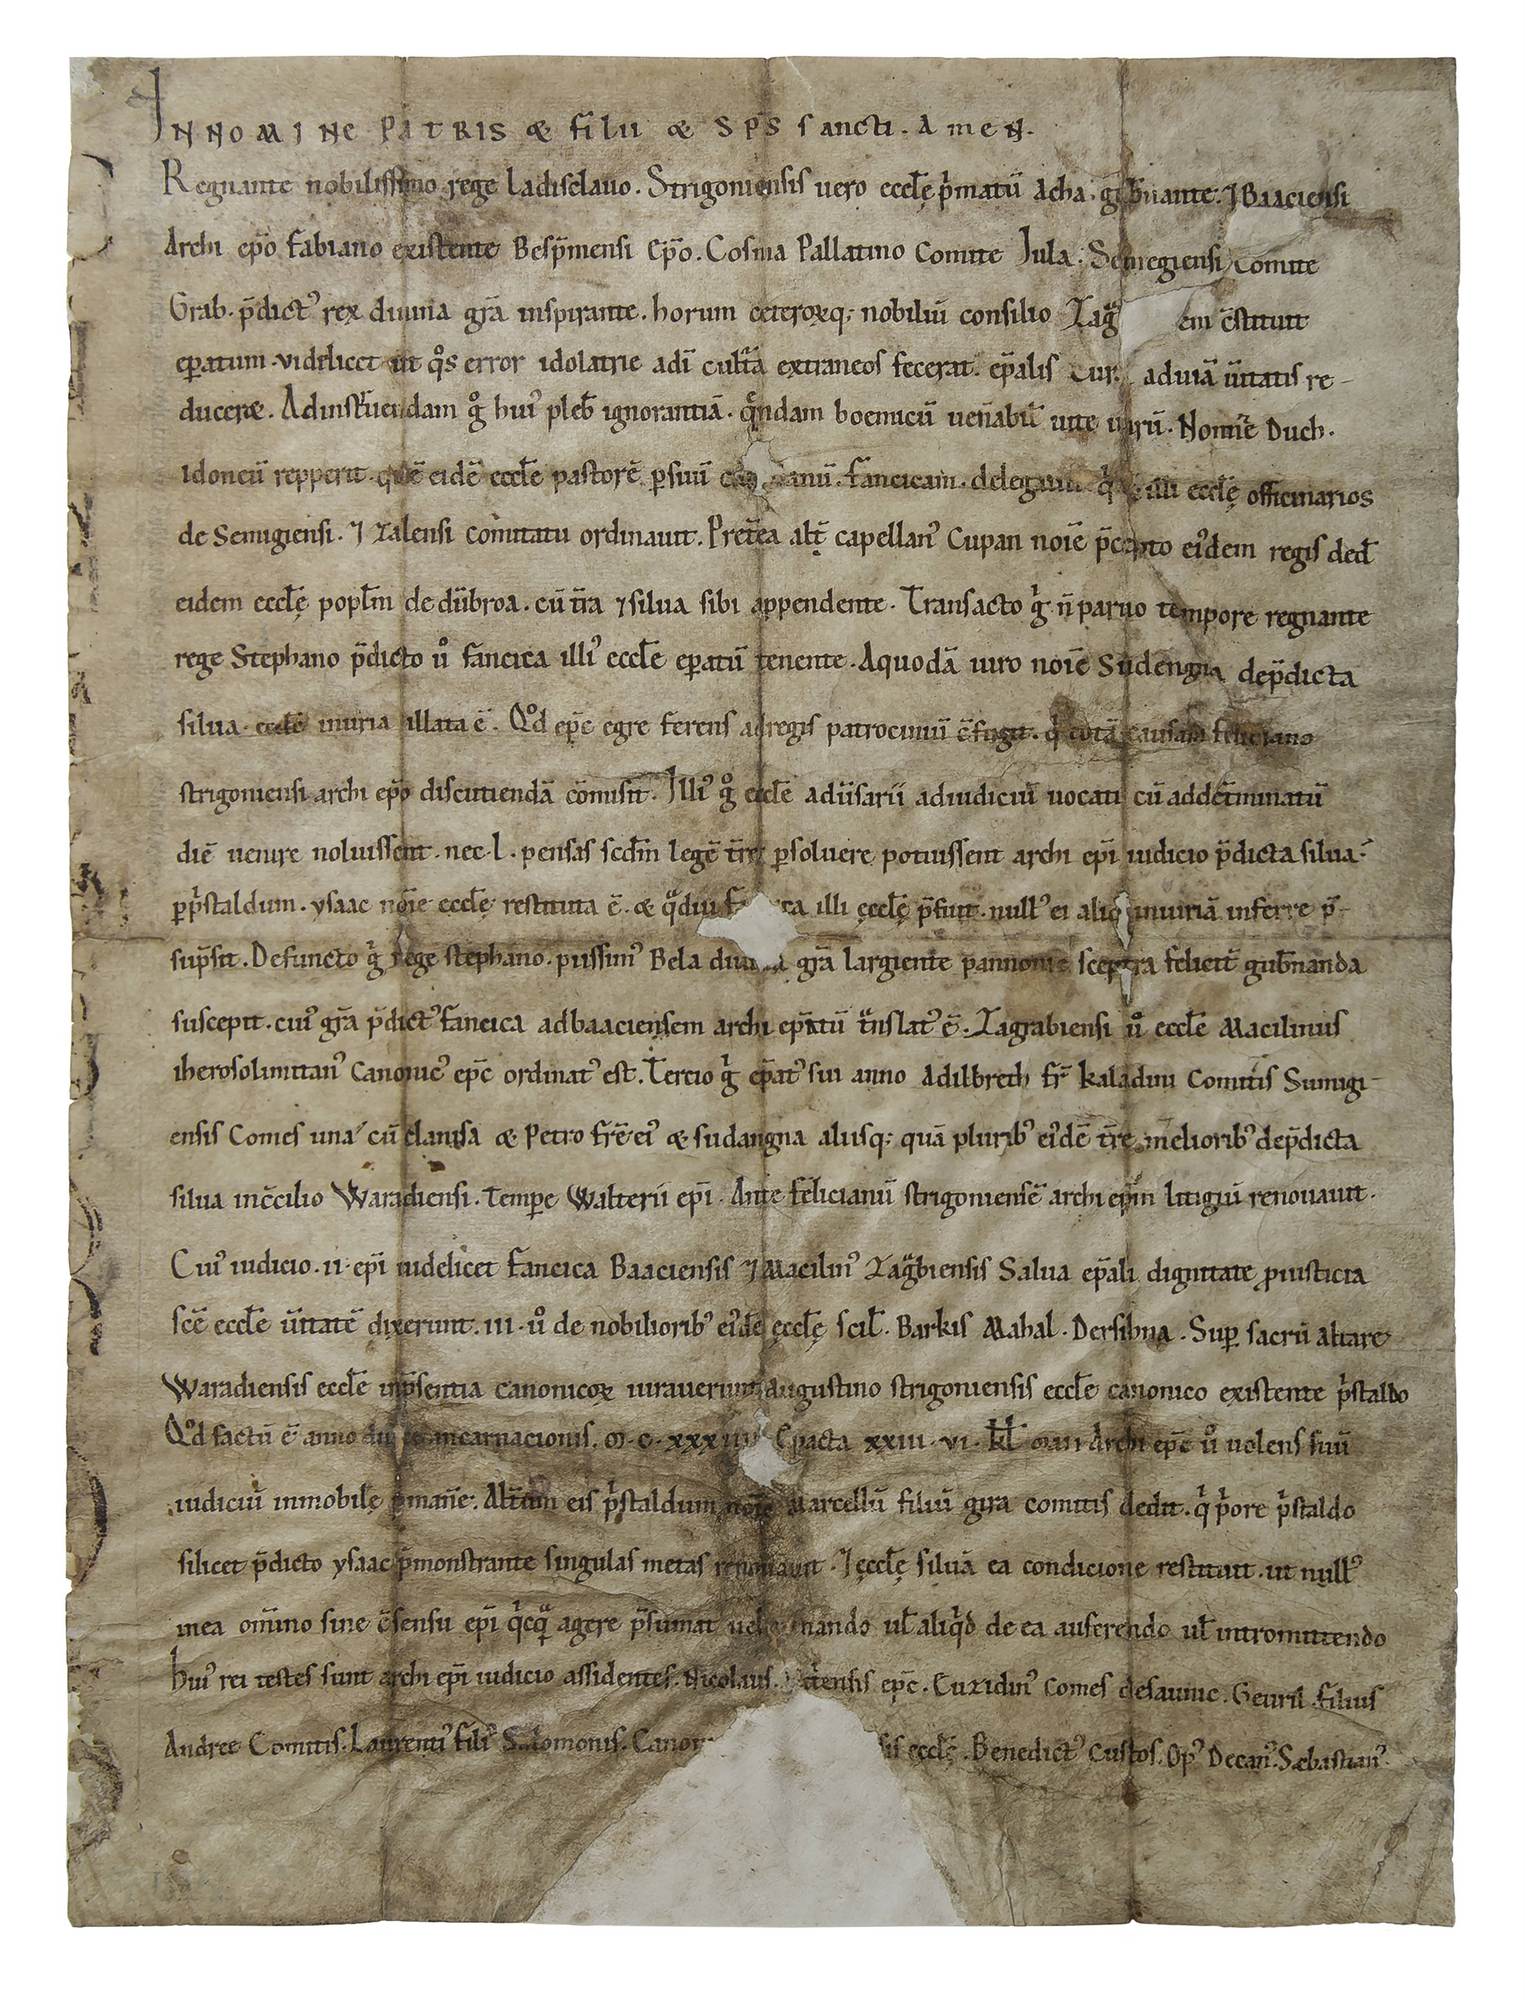 IN NOMINE PATRIS & filii & SP̅S sancti. AmeN.
Regnante nobilissimo rege Ladisclauo. Strigoniensis uero eccl̅ę p̍matū Acha. gubn̅ante. ⁊ Baaciensi
Archi ep̅o Fabiano existente Besp̅mensi Ep̅o. Cosma Pallatino Comite Jula. Semegiensi Comite
Grab. p̅dictꝰ rex diuina gr̅a inspirante. horum ceteroꝝq; nobiliū consilio Zag em c̅stituit
ep̅atum. videlicet ut qͦs error idolatrie a di̅ cultͣa extraneos fecerat. ep̅alis cur. ad uiā ū̅itatis re-
ducere. Ad inst̍uendam gͦ huiꝰ pleb̅ ignorantiā. qͣndam boemicū uen̅abil̅ uite uirū. Nomi̅e Duch.
Idoneū repperit. quē eidē eccl̅e pastorē ꝑ suū anū. fancicam. delegauit q̍ illi eccl̅ę officinarios
de Semigiensi. ⁊ Zalensi comitatu ordinauit. Pret̅ea alt̅ capellanꝰ Cupan noi̅e p̅cepto eiꝰdem regis ded̅
eidem eccl̅ę popl̅m de dū̅broa. cū tr̅a ⁊ silua sibi appendente. Transacto g̍ n̅ paruo tempore regnante
rege Stephano p̅dicto uͦ fancica illiꝰ eccl̅e ep̅atū tenente. A quodā uiro noi̅e Sudengia de p̅dicta
silua. eccl̅e iniuria illata ē. Qͦd ep̅c egre ferens ad regis patrociniū c̅fugit. q̍ totā causam feliciano
strigoniensi archi ep̅o discutiendā cōmisit. Illiꝰ gͦ eccl̅e adū̅sarii ad iudiciū uocati cū ad det̅minatū
diē uenire noluissent. nec. l. pensas scd̅m legē tr̅e ꝑsoluere potuissent archi ep̅i iudicio p̅dicta silua.
ꝑ p̍staldum. ysaac noi̅e eccl̅ę restituta ē. & qͣdiu fa ca illi eccl̅ę p̅fuit. nullꝰ ei aliq̍ iniuriā inferre p̅-
sup̅sit. Defuncto g̍ rege stephano. piissimꝰ Bela diuina gr̅a largiente pannonie sceptra felicit̅ gub̅nanda
suscepit. cuiꝰ gr̅a p̅dictꝰ fancica ad baaciensem archi ep̅atū tͣnslatꝰ ē. Zagrabiensi uͦ eccl̅e Macilinus
iherosolimitanꝰ Canonicꝰ ep̅c ordinatꝰ est. Tercio g̍ ep̅atꝰ sui anno Adilbreth fr̅ Kaladini Comitis Sumigi-
ensis Comes una cū elanisa & Petro fr̅e eiꝰ & sudangna aliisq; quā pluribꝰ eiꝰdē tr̅e melioribꝰ de p̅dicta
silua in c̅cilio Waradiensi. Tempe̅ Walterii ep̅i. Ante felicianū strigoniensē archi ep̅m litigiū renouauit.
Cuiꝰ iudicio. ii. ep̅i uidelicet fancica Baaciensis ⁊ Macilinꝰ Zagͣbiensis Salua ep̅ali dignitate ꝓ iusticia
sc̅e eccl̅e ū̅itatē dixerunt. iii. uͦ de nobilioribꝰ eiꝰdē eccl̅ę scil̅. Barkis Mahal. Dersibna. Sup̅ sacrū altare
Waradiensis eccl̅e in p̅sentia canonicoꝝ iurauerunt Augustino strigoniensis eccl̅e canonico existente p̍staldo
Qͦd factū ē anno incarnacionis. ᴍ. c. xxxiiii Epacta xxiii. vi. kl̅ mai Archi ep̅c uͦ uolens suū
iudiciū inmobile ꝑman̅e. Alt̅um eis p̍staldum noi̅e Marcellū filiū gira comitis dedit. q̍ p̍ore p̍staldo
silicet p̅dicto ysaac p̅monstrante singulas metas renouauit. ⁊ eccl̅ę siluā ea condicione restituit. ut nullꝰ
in ea om̅ino sine c̅sensu ep̅i q̍cqͣ agere p̅sumat nando ul̅ aliq̍d de ea auferendo ul̅ intromittendo
huiꝰ rei testes sunt archi ep̅i iudicio assidentes. Nicolaus. ep̅c. Cuzidinꝰ Comes de saunic. Geuril. filius
Andree Comitis. Laurentiꝰ filiꝰ Salomonis. Canon sis eccl̅ę. Benedictꝰ Custos. Opꝰ Decanꝰ. Sæbastianꝰ.